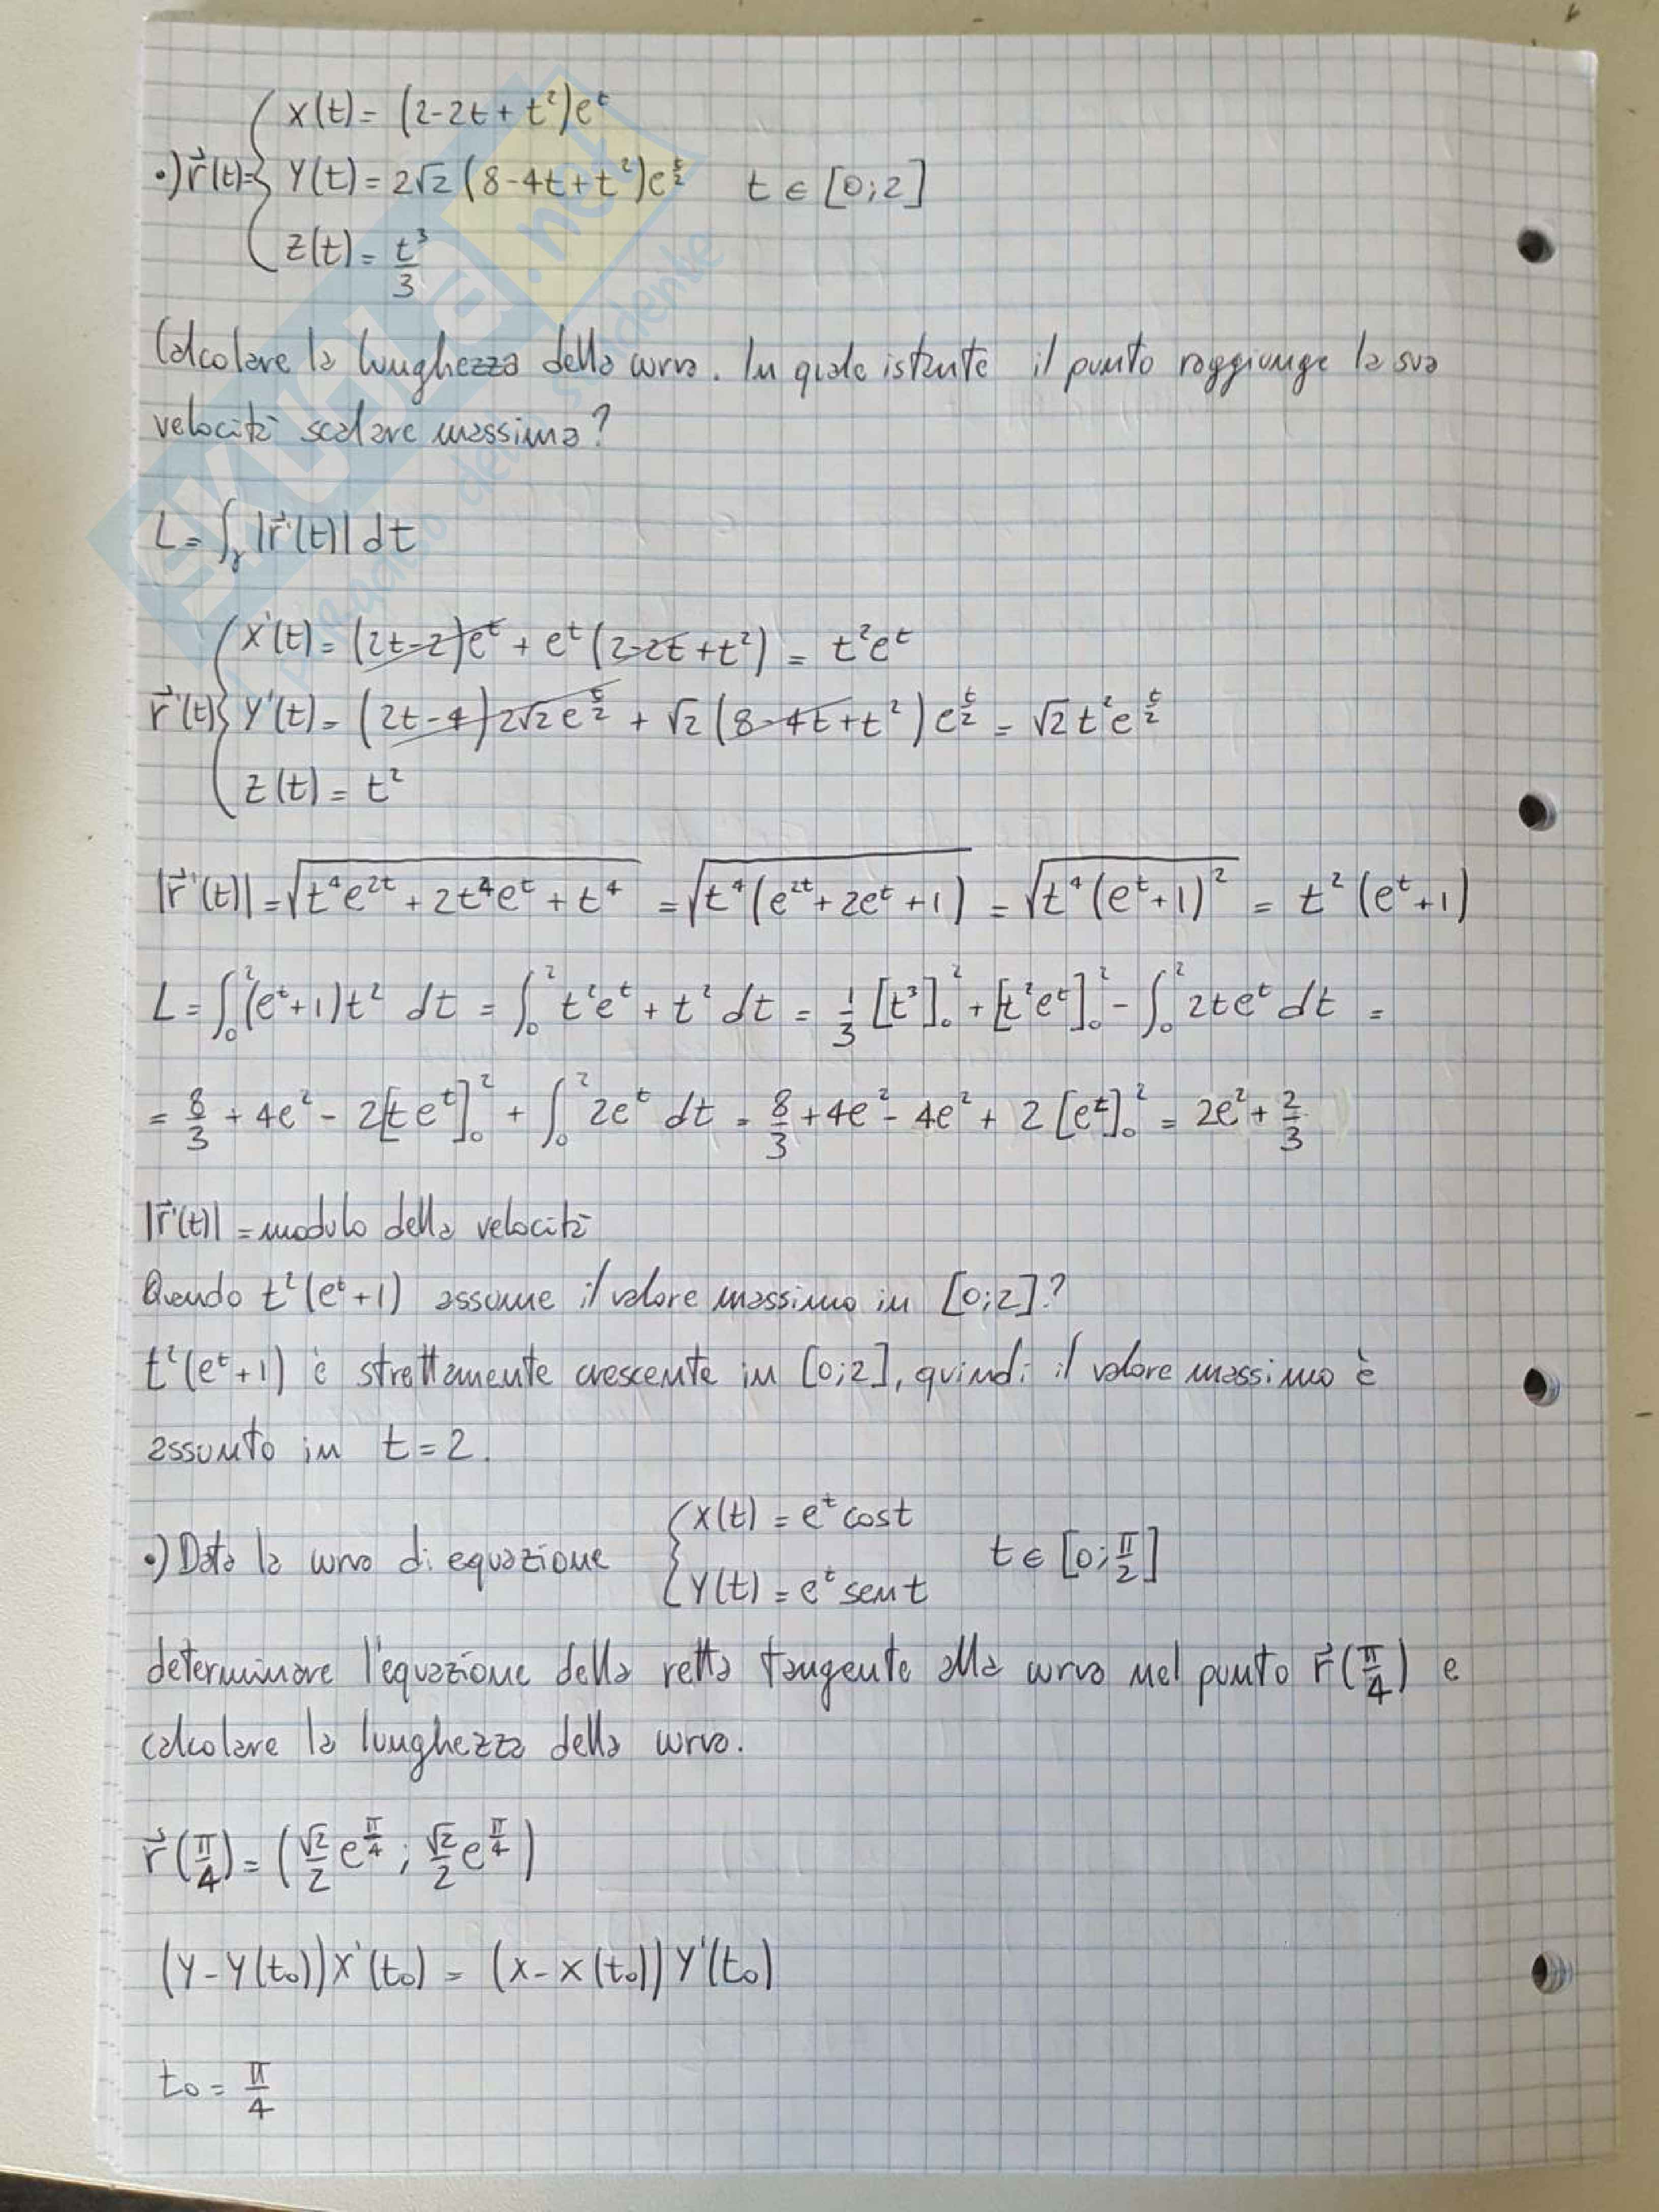 x(t) = (2-2t+t²)e^t
•) r⃗(t)= { y(t) = 2√2 (8-4t+t²)e^(t/2) t ∈ [0;2]
z(t) = t³/3
Calcolare la lunghezza della curva. In quale istante il punto raggiunge la sua
velocità scalare massima?
L = ∫_γ |r⃗'(t)| dt
x'(t) = (2t-2)e^t + e^t (2-2t+t²) = t²e^t
r⃗'(t) { y'(t) = (2t-4)2√2 e^(t/2) + √2 (8-4t+t²) e^(t/2) = √2 t² e^(t/2)
z(t) = t²
|r⃗'(t)| = √(t⁴e^(2t) + 2t⁴e^t + t⁴) = √(t⁴(e^(2t) + 2e^t + 1)) = √(t⁴(e^t+1)²) = t² (e^t+1)
L = ∫₀² (e^t+1)t² dt = ∫₀² t²e^t + t² dt = 1/3 [t³]₀² + [t²e^t]₀² - ∫₀² 2te^t dt =
= 8/3 + 4e² - 2[te^t]₀² + ∫₀² 2e^t dt = 8/3 + 4e² - 4e² + 2 [e^t]₀² = 2e² + 2/3
|r⃗'(t)| = modulo della velocità
Quando t²(e^t+1) assume il valore massimo in [0;2]?
t²(e^t+1) è strettamente crescente in [0;2], quindi il valore massimo è
assunto in t=2.
•) Data la curva di equazione { x(t) = e^t cost t ∈ [0;π/2]
y(t) = e^t sent
determinare l'equazione della retta tangente alla curva nel punto r⃗(π/4) e
calcolare la lunghezza della curva.
r⃗(π/4) = (√2/2 e^(π/4) ; √2/2 e^(π/4))
(y-y(t₀))x'(t₀) = (x-x(t₀))y'(t₀)
t₀ = π/4
SKUOLA.net
il paradiso dello studente